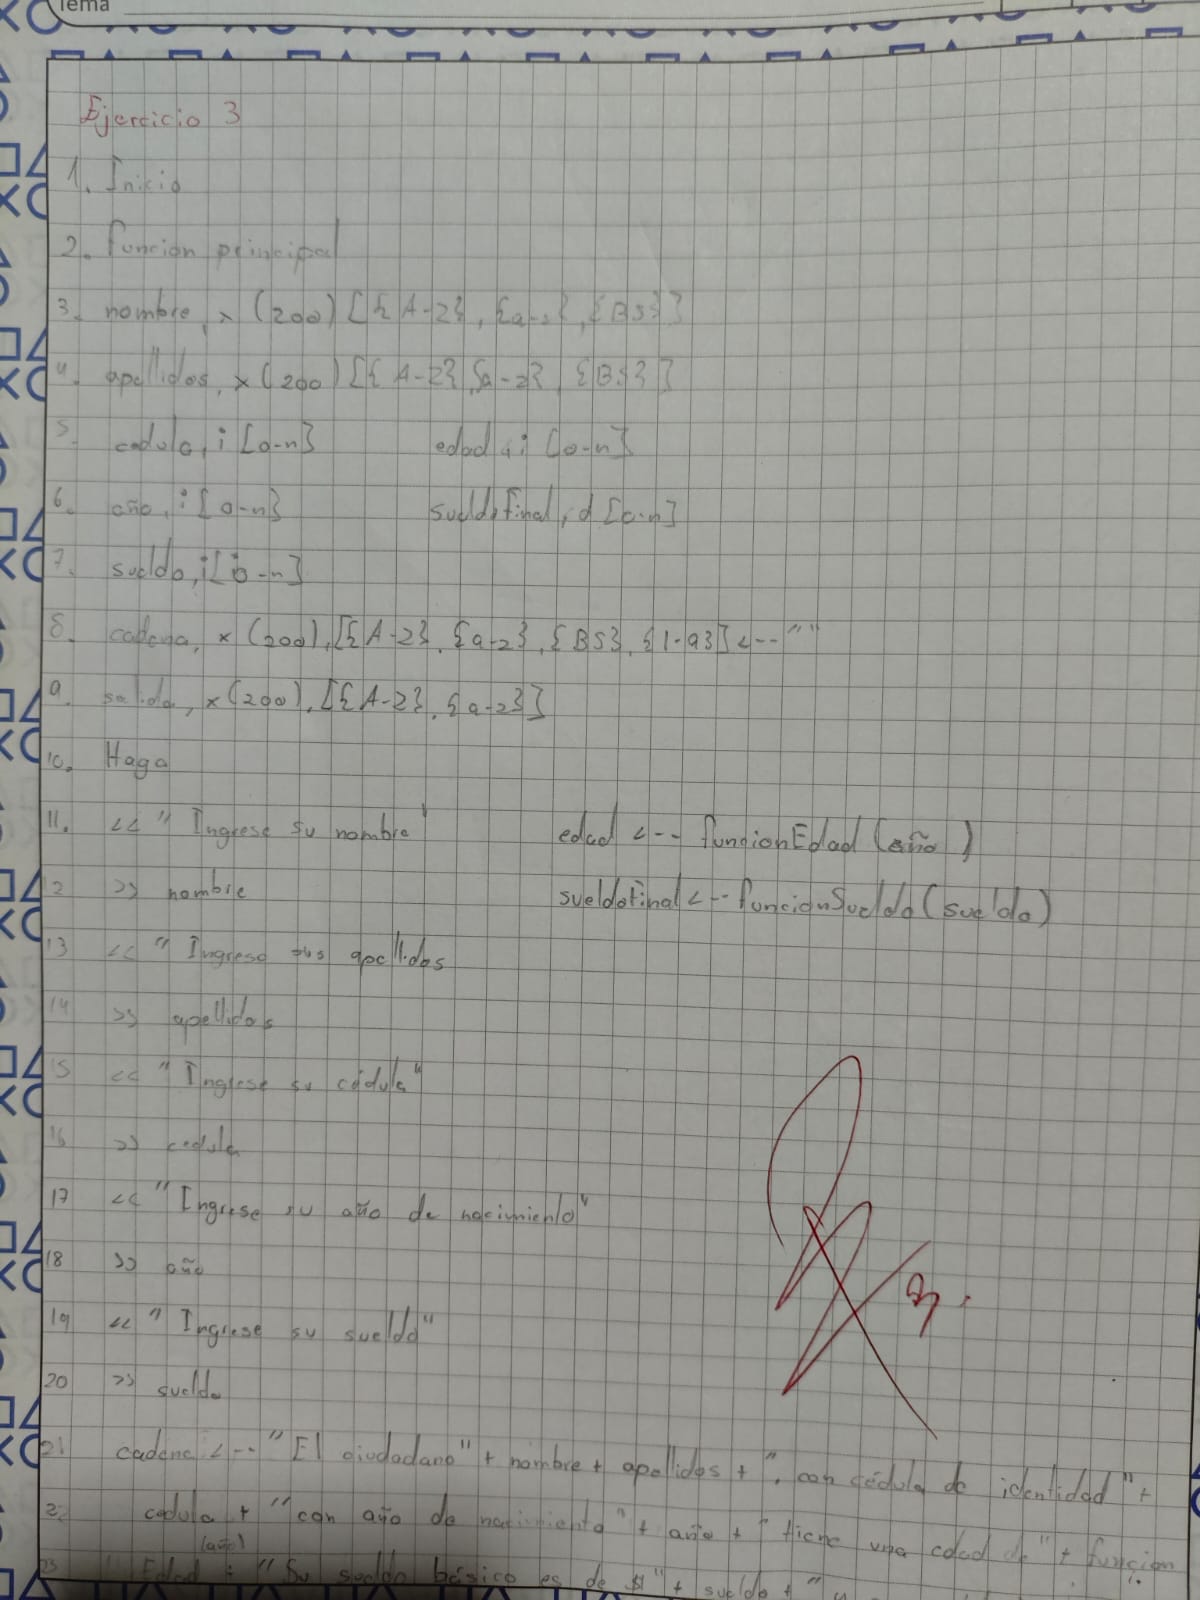 Tema
Ejercicio 3
1. Inicio
2. funcion principal
3. nombre, x (200) [{A-z}, {a-z}, {BS}]
4. apellidos, x (200) [{A-z}, {a-z}, {BS}]
5. cedula, i [0-n] edad, i [0-n]
6. año, i [0-n] sueldofinal, d [0-n]
7. sueldo, i [0-n]
8. cadena, x (200), [{A-z}, {a-z}, {BS}, {1-9}] <-- ""
9. salida, x (200), [{A-z}, {a-z}]
10. Haga
11. << "Ingrese su nombre" edad <-- funcionEdad (año)
12 >> nombre sueldofinal <-- funcionSueldo (sueldo)
13 << "Ingrese sus apellidos
14 >> apellidos
15 << "Ingrese su cédula"
16 >> cedula
17 << "Ingrese su año de nacimiento"
18 >> año
19 << "Ingrese su sueldo"
20 >> sueldo
21 cadena <-- "El ciudadano" + nombre + apellidos + ", con cédula de identidad" +
22 cedula + "con año de nacimiento" + año + "tiene una edad de" + funcion
(año)
23 Edad + "Su sueldo básico es de $" + sueldo + "y